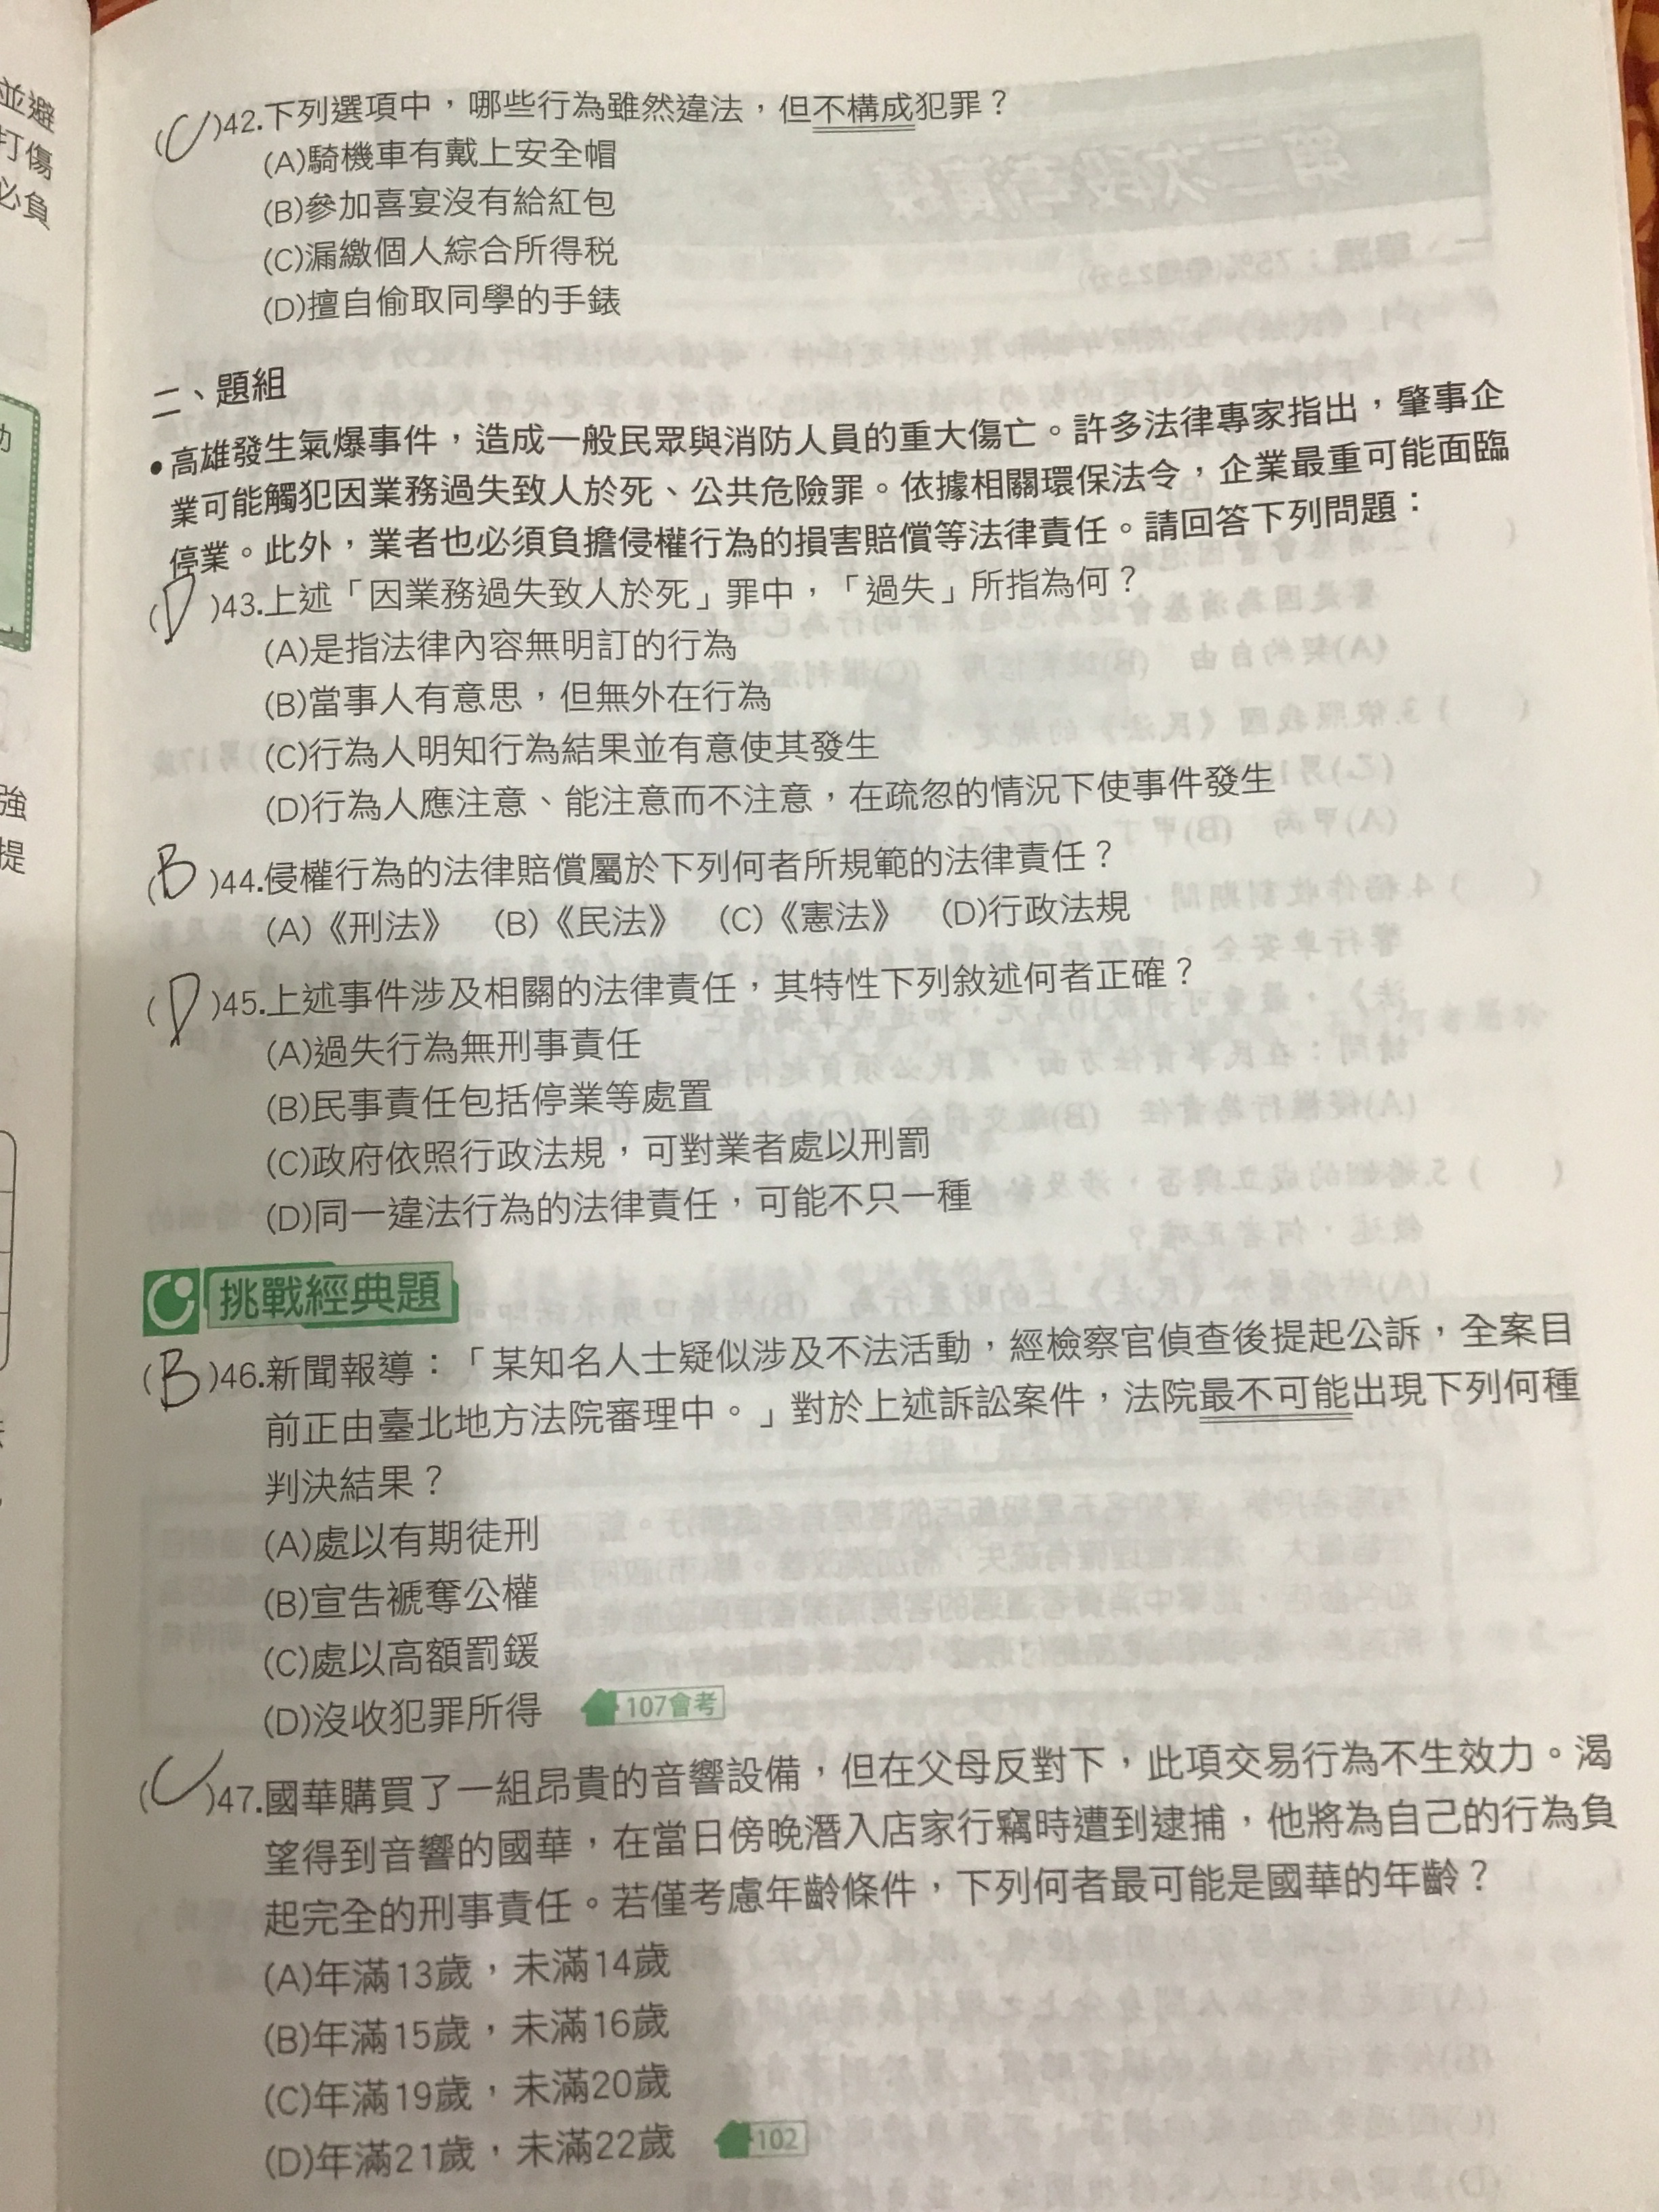 並避
打傷
必負
強
提
(C)42.下列選項中，哪些行為雖然違法，但不構成犯罪？
(A)騎機車有戴上安全帽
(B)參加喜宴沒有給紅包
(C)漏繳個人綜合所得稅
(D)擅自偷取同學的手錶
二、題組
•高雄發生氣爆事件，造成一般民眾與消防人員的重大傷亡。許多法律專家指出，肇事企
業可能觸犯因業務過失致人於死、公共危險罪。依據相關環保法令，企業最重可能面臨
停業。此外，業者也必須負擔侵權行為的損害賠償等法律責任。請回答下列問題：
(D)43.上述「因業務過失致人於死」罪中，「過失」所指為何？
(A)是指法律內容無明訂的行為
(B)當事人有意思，但無外在行為
(C)行為人明知行為結果並有意使其發生
(D)行為人應注意、能注意而不注意，在疏忽的情況下使事件發生
(B)44.侵權行為的法律賠償屬於下列何者所規範的法律責任？
(A)《刑法》 (B)《民法》 (C)《憲法》 (D)行政法規
(D)45.上述事件涉及相關的法律責任，其特性下列敘述何者正確？
(A)過失行為無刑事責任
(B)民事責任包括停業等處置
(C)政府依照行政法規，可對業者處以刑罰
(D)同一違法行為的法律責任，可能不只一種
挑戰經典題
(B)46.新聞報導：「某知名人士疑似涉及不法活動，經檢察官偵查後提起公訴，全案目
前正由臺北地方法院審理中。」對於上述訴訟案件，法院最不可能出現下列何種
判決結果？
(A)處以有期徒刑
(B)宣告褫奪公權
(C)處以高額罰鍰
(D)沒收犯罪所得 107會考
(C)47.國華購買了一組昂貴的音響設備，但在父母反對下，此項交易行為不生效力。渴
望得到音響的國華，在當日傍晚潛入店家行竊時遭到逮捕，他將為自己的行為負
起完全的刑事責任。若僅考慮年齡條件，下列何者最可能是國華的年齡？
(A)年滿13歲，未滿14歲
(B)年滿15歲，未滿16歲
(C)年滿19歲，未滿20歲
(D)年滿21歲，未滿22歲 102